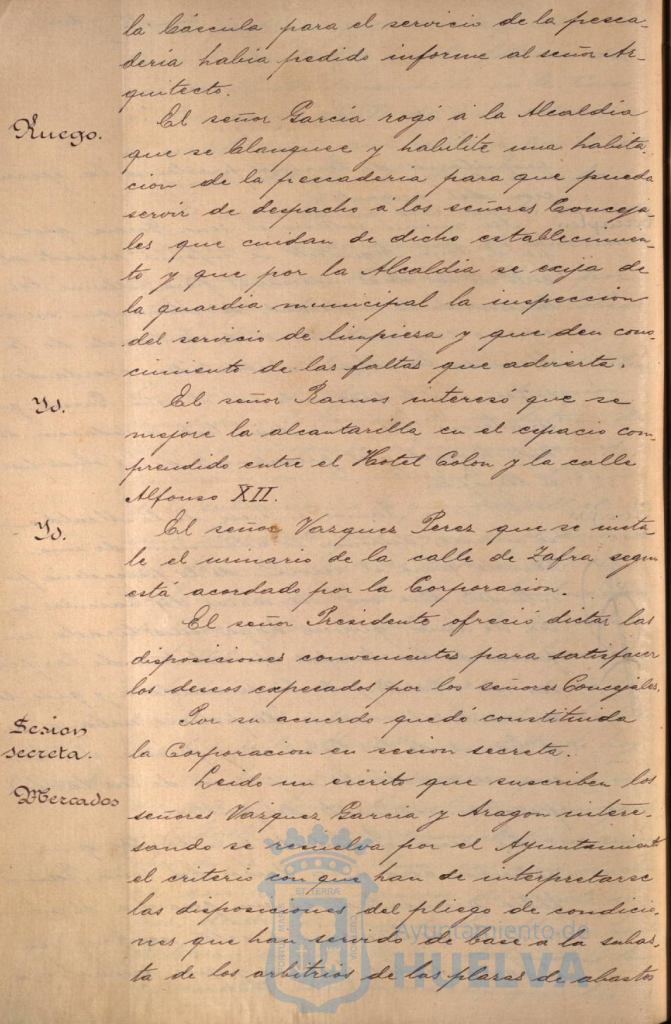 la báscula para el servicio de la pesca-
deria habia pedido informe al señor Ar-
quitecto.
Ruego.
El señor Garcia rogó á la Alcaldia
que se blanquee y habilite una habita-
cion de la pescaderia para que pueda
servir de despacho á los señores Conceja-
les que cuidan de dicho establecimien-
to y que por la Alcaldia se exija de
la guardia municipal la inspeccion
del servicio de limpiesa y que den cono-
cimiento de las faltas que advierta.
Yd.
El señor Ramos interesó que se
mejore la alcantarilla en el espacio com-
prendido entre el Hotel Colon y la calle
Alfonso XII.
Yd.
El señor Vazquez Perez que se insta-
le el urinario de la calle de Zafra segun
está acordado por la Corporacion.
El señor Presidente ofreció dictar las
disposiciones convenientes para satisfacer
los deseos expesados por los señores Concejales.
Sesion
secreta.
Por su acuerdo quedó constituida
la Corporacion en sesion secreta.
Mercados
Leido un escrito que suscriben los
señores Vazquez Garcia y Aragon intere-
sando se resuelva por el Ayuntamiento
el criterio con que han de interpretarse
las disposiciones del pliego de condicio-
nes que han servido de base á la subas-
ta de los arbitrios de las plazas de abastos
Ayuntamiento de
HUELVA